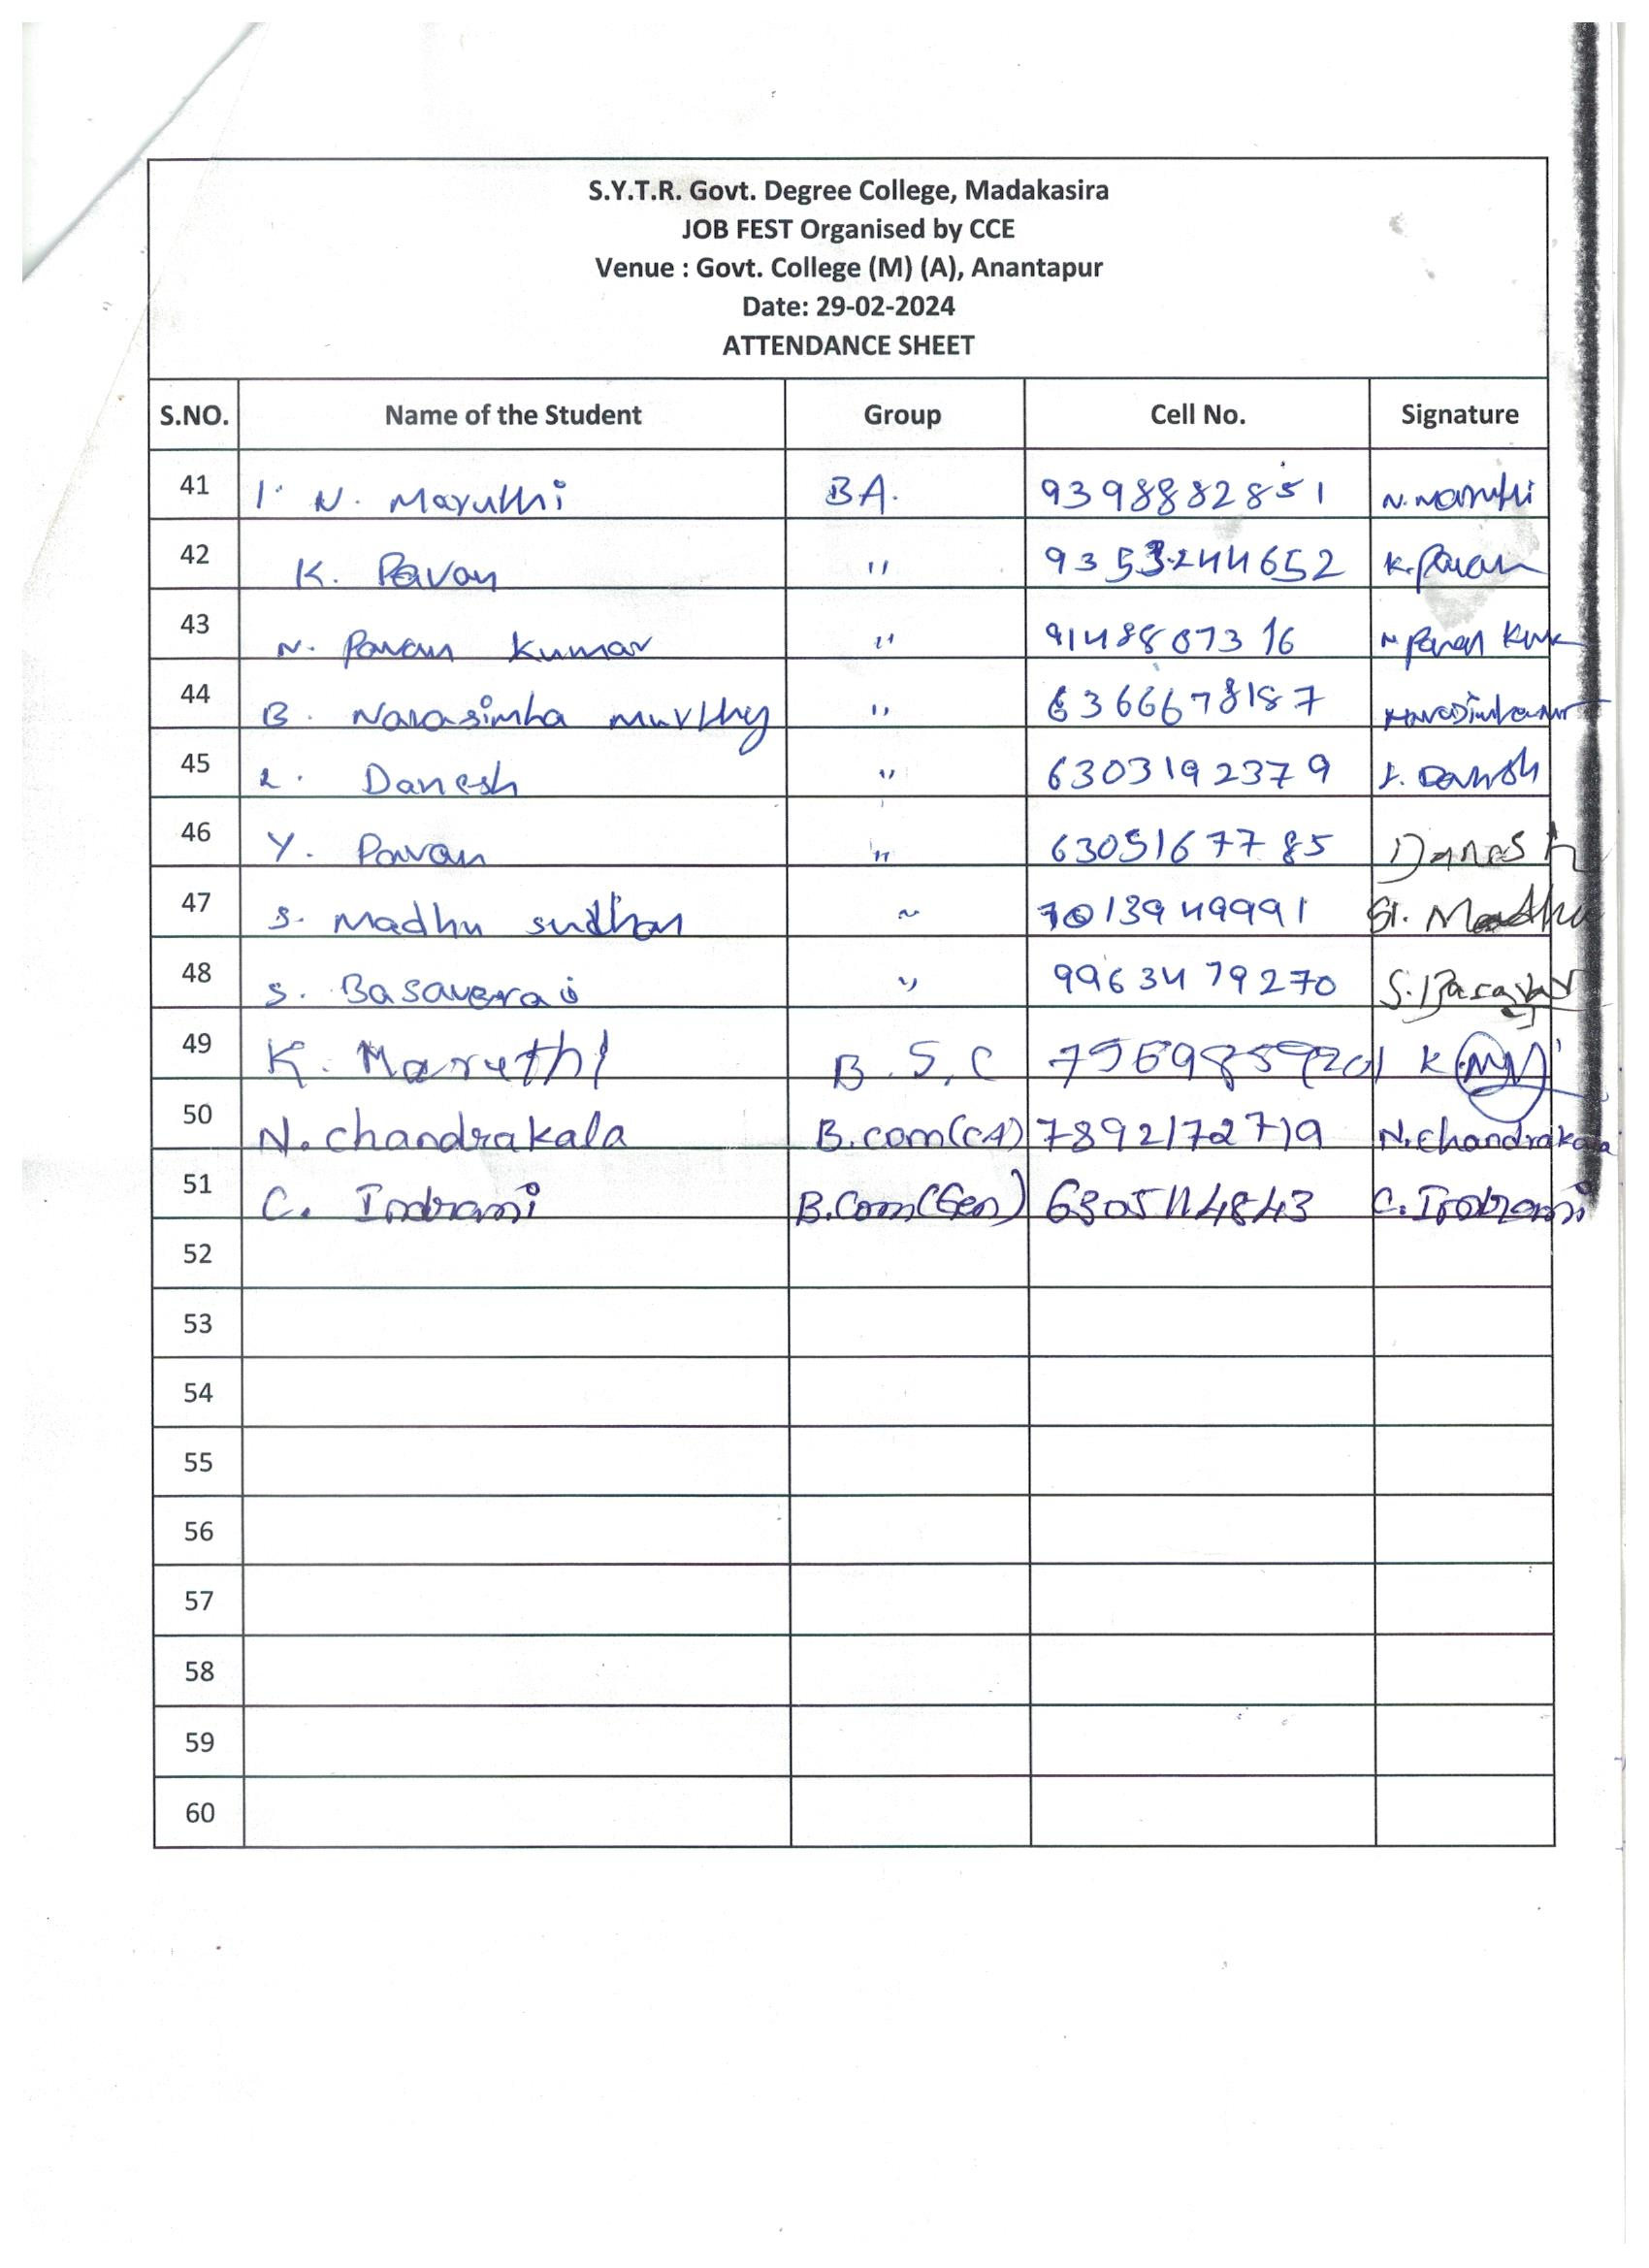 S.Y.T.R. Govt. Degree College, Madakasira
JOB FEST Organised by CCE
Venue : Govt. College (M) (A), Anantapur
Date: 29-02-2024
ATTENDANCE SHEET
S.NO. Name of the Student Group Cell No. Signature
41 1. N. Maruthi BA. 9398882851 N. Maruthi
42 K. Pavan " 9353244652 K. Pavan
43 N. Pavan Kumar " 9148807316 N Pavan Kumar
44 B. Narasimha Murthy " 6366678187
45 L. Danesh " 6303192379 L. Danesh
46 Y. Pavan " 6305167785 Danesh
47 S. Madhu sudhan " 7013949991 S. Madhu
48 S. Basavaraj " 9963479270 S. Basavaraj
49 K. Maruthi B.S.C 7569859201 K
50 N. chandrakala B.com(CA) 7892172719 N. Chandrakala
51 C. Indrani B.Com(Gen) 6305114843 C. Indrani
52
53
54
55
56
57
58
59
60